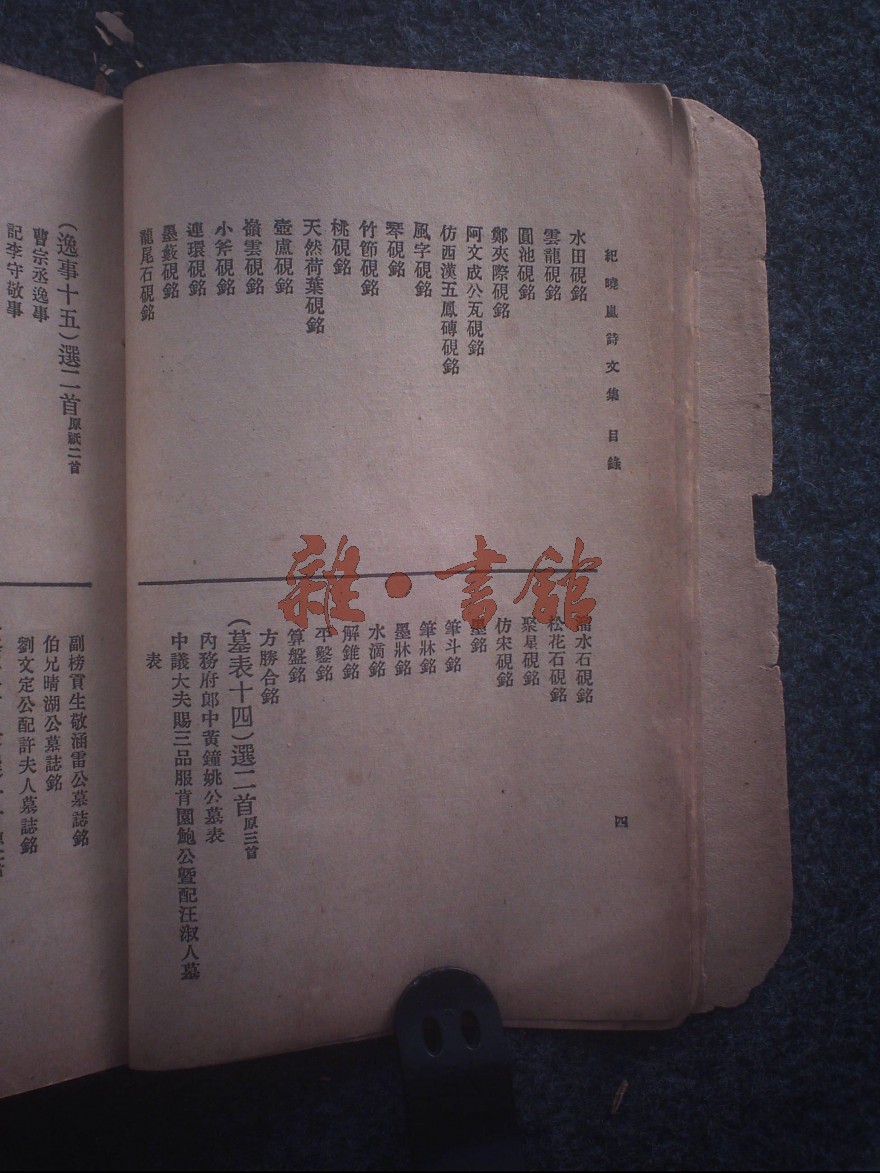 紀曉嵐詩文集 目錄
四
水田硯銘
雲龍硯銘
圓池硯銘
鄭夾際硯銘
阿文成公瓦硯銘
仿西漢五鳳磚硯銘
風字硯銘
琴硯銘
竹節硯銘
桃硯銘
天然荷葉硯銘
壺盧硯銘
嶺雲硯銘
小斧硯銘
連環硯銘
墨藪硯銘
龍尾石硯銘
水石硯銘
松花石硯銘
聚星硯銘
仿宋硯銘
墨銘
筆斗銘
筆牀銘
墨牀銘
水滴銘
解錐銘
銘
算盤銘
方勝合銘
(墓表十四)選二首原三首
內務府郎中黃鐘姚公墓表
中議大夫賜三品服肯園鮑公曁配汪淑人墓
表
(逸事十五)選二首原祇二首
曹宗丞逸事
記李守敬事
副榜貢生敬涵雷公墓誌銘
伯兄晴湖公墓誌銘
劉文定公配許夫人墓誌銘
雜·書館